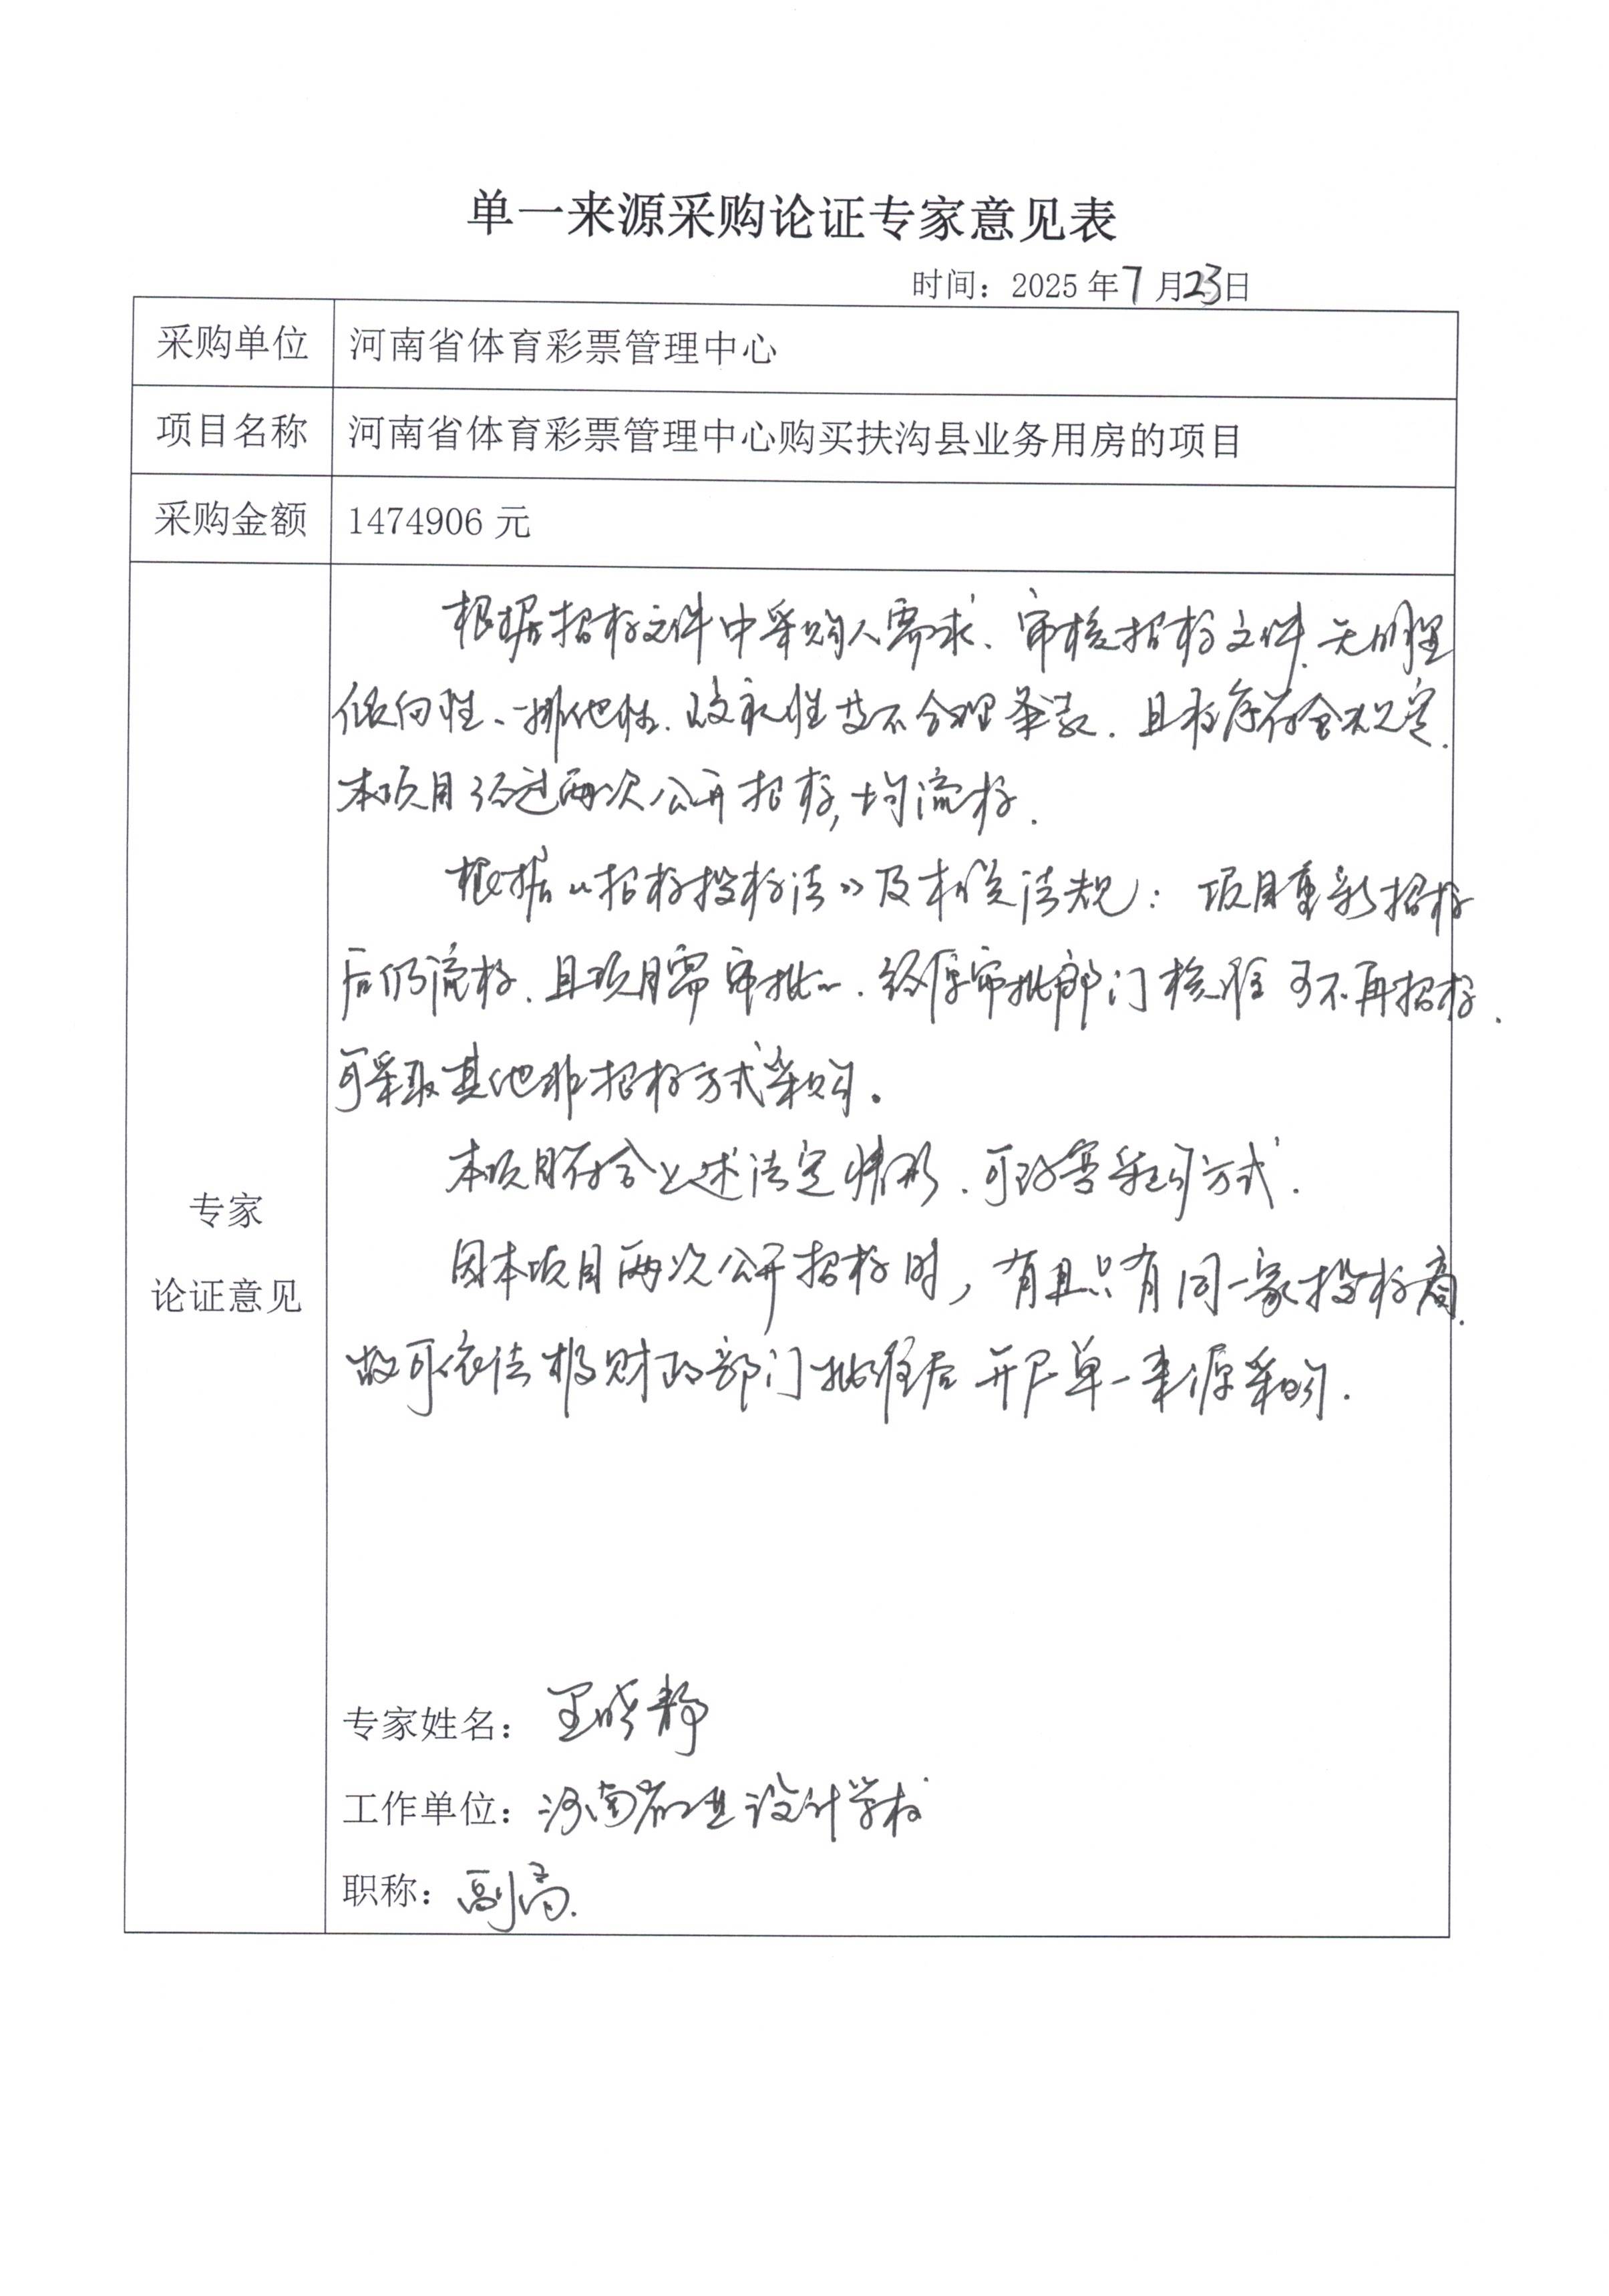 单一来源采购论证专家意见表
时间：2025年7月23日
采购单位 河南省体育彩票管理中心
项目名称 河南省体育彩票管理中心购买扶沟县业务用房的项目
采购金额 1474906 元
专家
论证意见
根据招标文件中采购人需求、审核招标文件，无明显
倾向性、排他性、歧视性及不合理条款．且程序符合规定．
本项目经过两次公开招标，均流标．
根据《招标投标法》及相关法规：项目重新招标
后仍流标．且项目需审批，经原审批部门核准可不再招标．
可采取其他非招标方式采购。
本项目符合上述法定情形．可改变采购方式．
因本项目两次公开招标时，有且只有同一家投标商．
故可依法报财政部门批准后开展单一来源采购．
专家姓名：王晓静
工作单位：河南省工业设计学校
职称：副高．